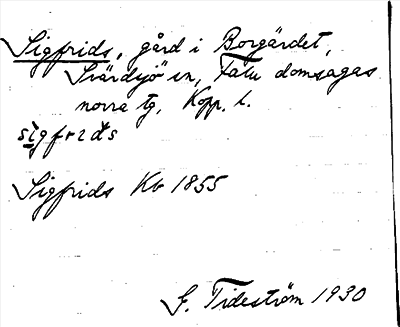 Sigfrids, gård i Borgärdet,
Svärdsjö sn, Falu domsagas
norra tg, Kopp. l.
sìgfrids
Sigfrids Kb 1855
G. Tideström 1930